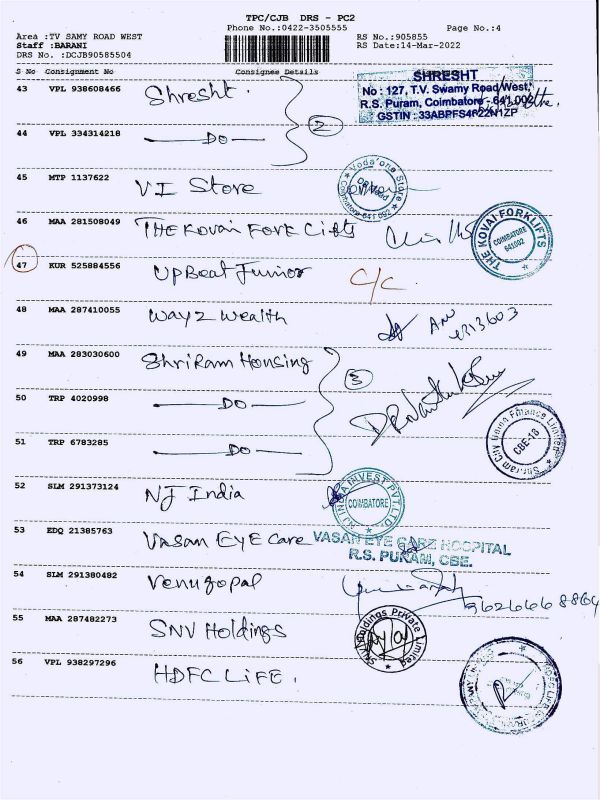 TPC/CJB DRS - PC2
Phone No.:0422-3505555
Page No.:4
Area :TV SAMY ROAD WEST
Staff :BARANI
DRS No. :DCJB90585504
RS No.:905855
RS Date:14-Mar-2022
S No Consignment No Consignee Details
43 VPL 938608466 Shresht.
SHRESHT
No : 127, T.V. Swamy Road West,
R.S. Puram, Coimbatore - 641 002
GSTIN : 33ABPFS4622N1ZP
2
44 VPL 334314218 — DO —
45 MTP 1137622 VI Store
Vodafone Store
Coimbatore 641 002
46 MAA 281508049 THE Kovai Fork Lifts
THE KOVAI FORKLIFTS
COIMBATORE
641002
47 KUR 525884556 UpBeat Junior C/C
48 MAA 287410055 Way2 Wealth
49 MAA 283030600 ShriRam Housing
3
50 TRP 4020998 — DO —
51 TRP 6783285 — DO —
Shriram City Union Finance Limited
CBE-18
52 SLM 291373124 NJ India
NJ INDIA INVEST PVT. LTD.
COIMBATORE
53 EDQ 21385763 Vasan EYE Care
VASAN EYE CARE HOSPITAL
R.S. PURAM, CBE.
54 SLM 291380482 Venugopal
55 MAA 287482273 SNV Holdings
SNV Holdings Private Limited
56 VPL 938297296 HDFC LIFE.